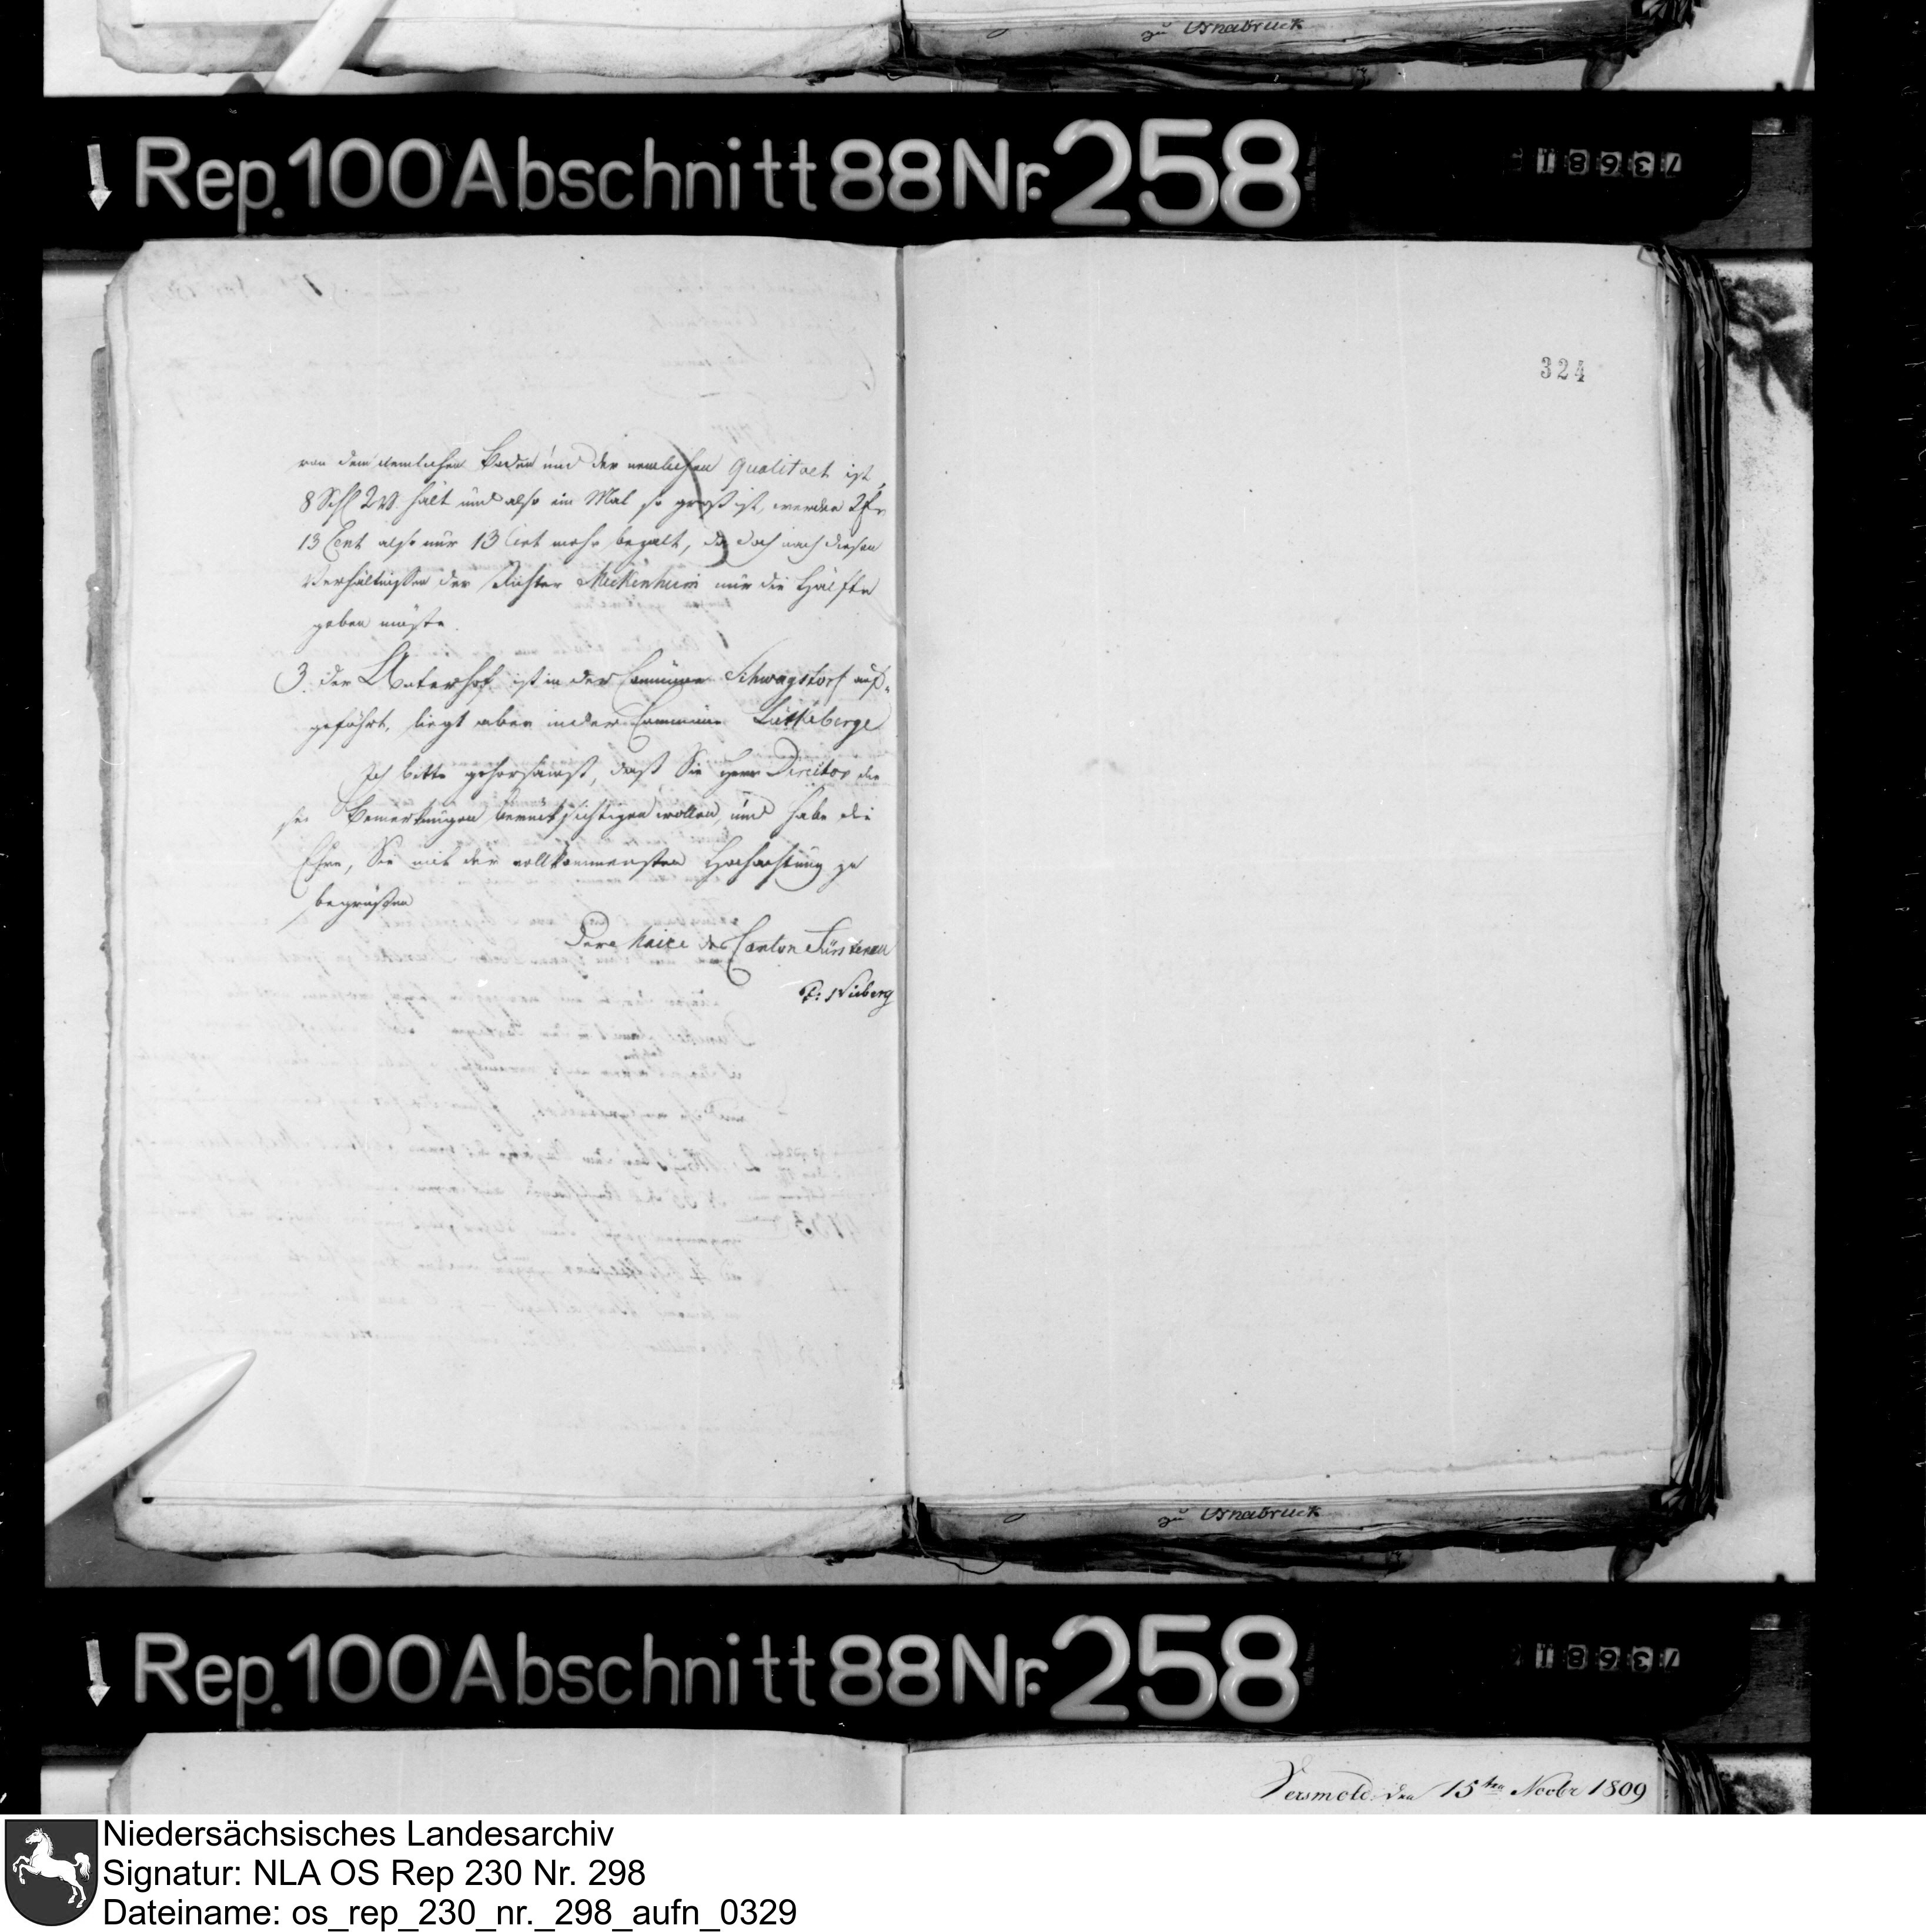 zu Osnabruck
Rep. 100 Abschnitt 88 Nr. 258
73681
324
von dem nemlichen Boden und der nemlichen Qualitaet ist,
8 Schl 2 V. hält und also ein Mal so groß ist, werden 2 fr
13 Cent also nur 13 Cent mehr bezalt, da doch nach diesen
Verhältnißen der Richter Meckenheim nur die Hälfte
geben müste.
3. der Unterhof ist in der Commune Schwagstorf auf-
geführt, liegt aber in der Commune Lütkeberge
Ich bitte gehorsamst, daß Sie Herr Director die
se Bemerkungen berücksichtigen wollen, und habe die
Ehre, Sie mit der vollkommensten Hochachtung zu
begrüßen
Der Maire des Canton Fürstenau
Nieberg
zu Osnabruck
Rep. 100 Abschnitt 88 Nr. 258
73681
Versmold den 15ten Novbr 1809
Niedersächsisches Landesarchiv
Signatur: NLA OS Rep 230 Nr. 298
Dateiname: os_rep_230_nr._298_aufn_0329